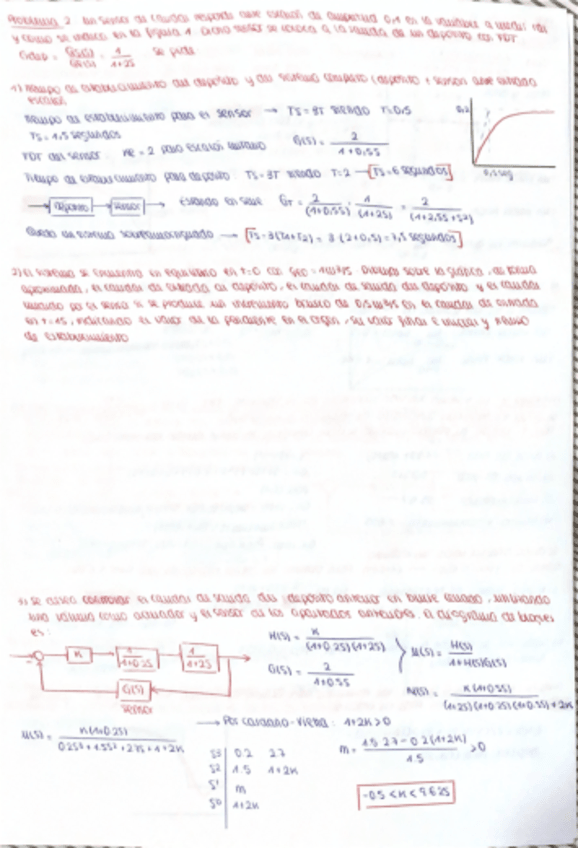 Problema 2 Un sensor de caudal responde ante escalón de amplitud 0,1 en la variable a medir tal
y como se indica en la figura 1. Dicho sensor se coloca a la salida de un depósito con FDT
Gdep = Qs(s)/Qe(s) = 1/1+2s se pide
1) Tiempo de establecimiento del depósito y del sistema completo (depósito + sensor) ante entrada
escalón
Tiempo de establecimiento para el sensor → Ts = 3T siendo T=0,5
Ts = 1,5 segundos
G(s) = 2/1+0,5s
FDT del sensor: Ke = 2 para escalón unitario
Tiempo de establecimiento para depósito: Ts = 3T siendo T=2 → Ts = 6 segundos
0,2
0,5 seg
depósito
sensor
Estando en serie GT = 2/(1+0,5s) · 1/(1+2s) = 2/(1+2,5s+s²)
Queda un sistema sobreamortiguado → Ts = 3(T1+T2) = 3(2+0,5) = 7,5 segundos
2) El sistema se encuentra en equilibrio en t=0 con qe0 = 1 m³/s. Dibujar sobre la gráfica, de forma
aproximada, el caudal de entrada al depósito, el caudal de salida del depósito y el caudal
medido por el sensor si se produce un incremento brusco de 0,5 m³/s en el caudal de entrada
en t=1s, indicando el valor de la pendiente en el origen, su valor final e inicial y tiempo
de establecimiento
3) Se desea controlar el caudal de salida del depósito anterior en bucle cerrado, utilizando
una válvula como actuador y el sensor de los apartados anteriores. El diagrama de bloques
es:
K
1/1+0.2s
1/1+2s
G(s)
sensor
H(s) = K/(1+0.2s)(1+2s)
G(s) = 2/1+0.5s
M(s) = H(s)/1+H(s)G(s)
M(s) = K(1+0.5s)/(1+2s)(1+0.2s)(1+0.5s)+2K
M(s) = K(1+0.5s)/0.2s³+1.5s²+2.7s+1+2K
→ Por Cardano-Vieta: 1+2K>0
S3 0.2 2.7
S2 1.5 1+2K
S1 m
S0 1+2K
m = 1.5·2.7-0.2(1+2K)/1.5 >0
-0.5 < K < 9.625